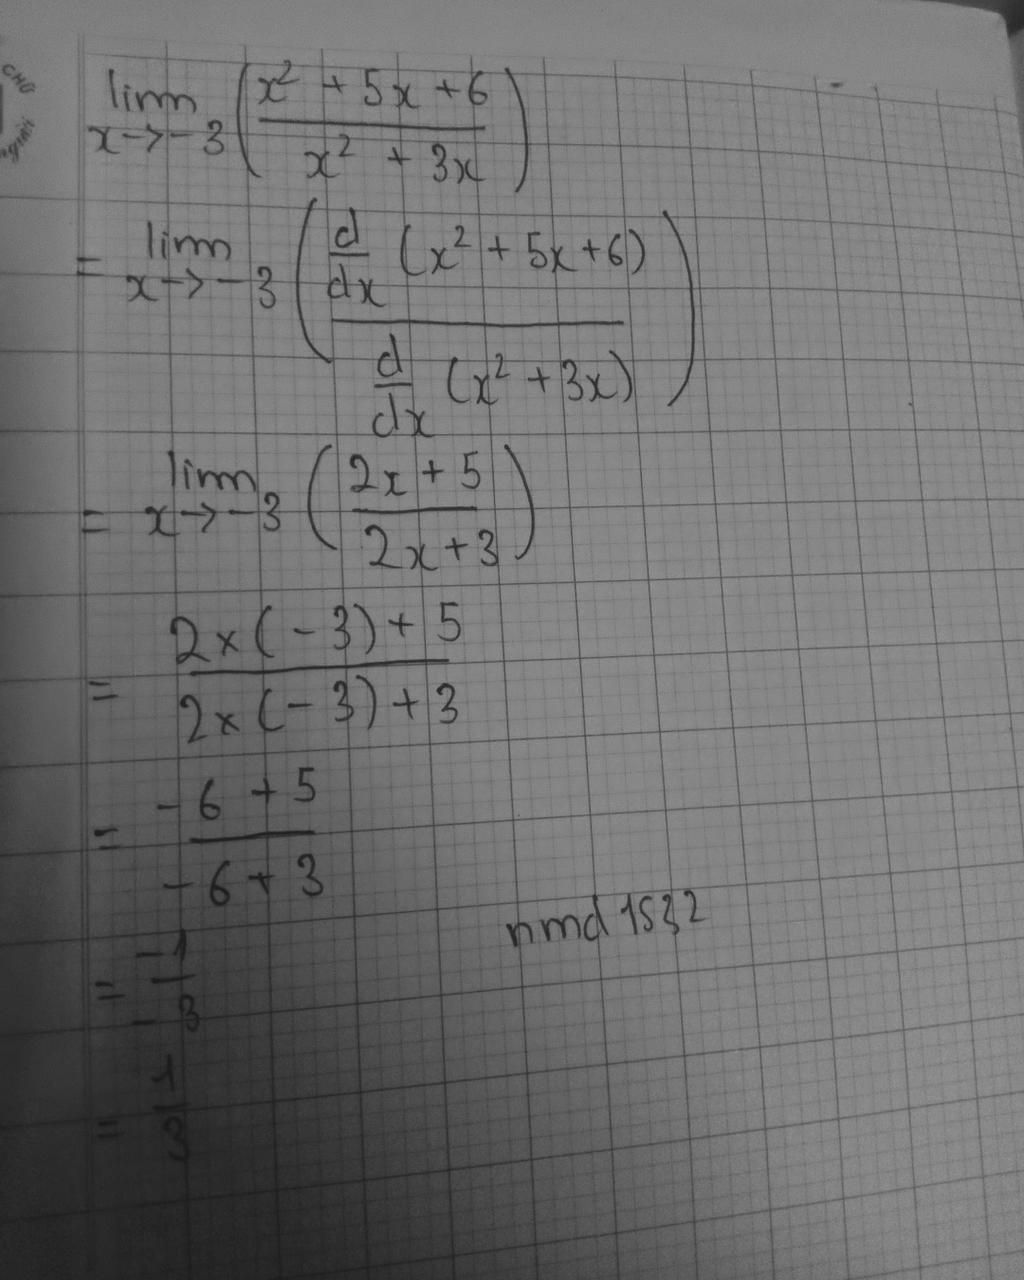 lim x→-3 (x² + 5x + 6 / x² + 3x)
= lim x→-3 (d/dx (x² + 5x + 6) / d/dx (x² + 3x))
= lim x→-3 (2x + 5 / 2x + 3)
= 2×(-3) + 5 / 2×(-3) + 3
= -6 + 5 / -6 + 3
nmd 1532
= -1 / -3
= 1 / 3